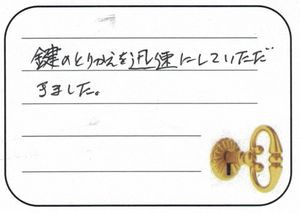 鍵のとりかえを迅速にしていただ
きました。